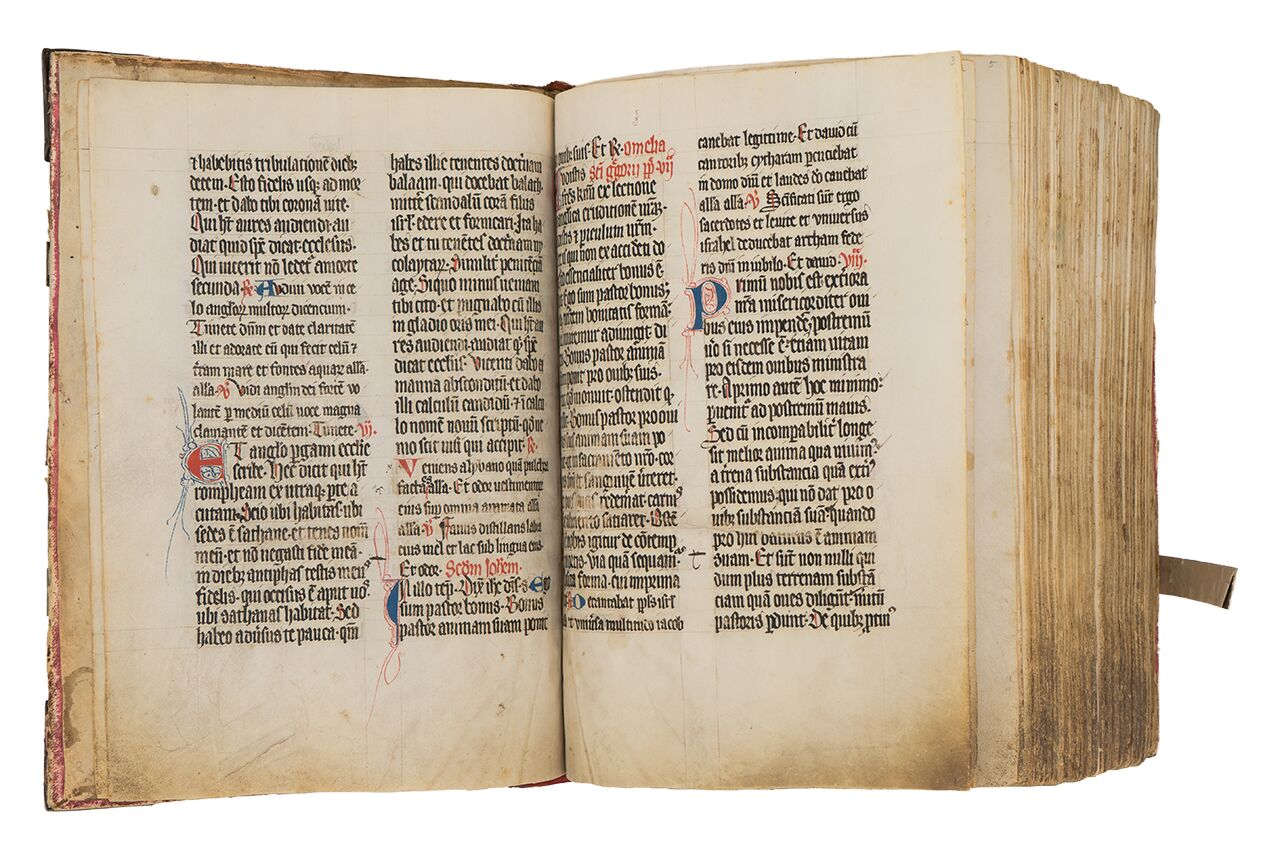 ⁊ habebitis tribulationē dieb;
decem. Esto fidelis usq; ad mor
tem. et dabo tibi coronā uite.
Qui hꝫ aures audiendi. au
diat quid sp̄c dicat ecclesiis.
Qui uicerit nō ledet᷑ a morte
secunda. R̷ Audiui vocē in ce
lo angloꝝ multoꝝ dicencium.
Timete dn̄m et date claritatē
illi et adorate eū qui fecit celū ⁊
t̄ram mare et fontes aquaꝝ alla.
alla. V̷ Vidi angl̄m dei fortē vo
lantē ꝑ mediū celū uoce magna
clamantē et dicētem. Timete. vij.
Et anglo ꝑgami eccl̄ie
scribe. Hec dicit qui hꝫ
rompheam ex utraq; pte a
cutam. Scio ubi habitas. ubi
sedes ē sathane. et tenes nom̄
meū. et nō negasti fidē meā.
in dieb; antiphas testis meus
fidelis. qui occisus ē aput uos
ubi sathanas habitat. Sed
habeo aduersus te pauca. qm̄
habes illic tenentes doctr̄nam
balaam. qui docebat balach.
mittē scandalū corā filiis
isrl̄. edere et fornicari. Ita ha
bes et tu tenētes doctr̄nam ny
colaytaꝝ. Similit᷑ penitēciā
age. Si quo minus ueniam
tibi cito. et pugnabo cū illis
in gladio oris mei. Qui hꝫ au
res audiendi. audiat qͥ sp̄c
dicat eccl̄iis. Vicenti dabo ei
manna absconditū. et dabo
illi calculū candidū. ⁊ ī calcu
lo nomen nouū scriptū. qd̄ ne
mo scit nisi qui accipit. R̷
Veniens a lybano quā pulchra
facta es alla. Et odor vestimentoꝝ
tuoꝝ suꝑ omnia aromata alla
alla. V̷ Fauus distillans labia
eius mel et lac sub lingua eius.
Et odor. Scd̄m Joh̄em.
In illo tēp. Dix̄ ihc̄ dis. s. Ego
sum pastor bonus. Bonus
pastor animam suam ponit
suis. Et R̷. omelia
sc̄i g̓gorii pp̄. vij
fr̄es kmī ex lectione
eruditionē ur̄am.
⁊ periculum ur̄m.
qui non ex accidēti do
essencialiter bonus ē.
Ego sum pastor bonus.
bonitatis formā.
imitemur adiungit di
Bonus pastor animā
ponit pro ouib; suis.
monuit. ostendit q̄
Bonus pastor pro oui
animam suam po
sacramēto nr̄o. cor
sanguinē uerteret.
redemerat. carnis
satiaret. Oste
igitur de cōtemp
via quā sequiam̄
forma. cui inprima
Decantabat ppl̄s isrl̄
et vniūsa multitudo iacob
canebat legittime. Et dauid cū
cantorib; cytharam percuciebat
in domo dn̄i et laudes deo canebat
alla alla. V̷ Scificati sunt ergo
sacerdotes et leuite et vniuersus
israhel deducebat archam fede
ris dn̄i in iubilo. Et dauid. viij.
Primū nobis est. exteriora
nr̄a misericorditer oui
bus eius impendē. postremū
uo si necesse ē. etiam uitam
pro eisdem ouibus ministra
re. A primo autē hoc minimo
ꝑuenit᷑ ad postremū maius.
Sed cū incomꝑabilit᷑ longe
sit melior anima qua uiuim᷑
a trena substancia quā exti᷑
possidemus. qui nō dat pro o
uib; substanciā suā. quando
pro hiis daturus ē animam
suam. Et sūt non nulli qui
dum plus terrenam substā
ciam quā oues diligūt. mitū
pastoris ꝑdunt. De quib; ꝓtin᷑